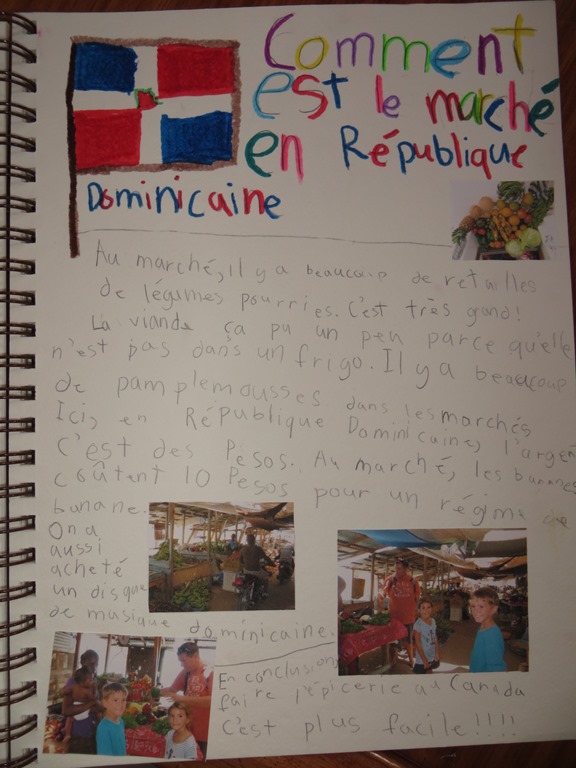 Comment
est le marché
en République
Dominicaine
Au marché, il y a beaucoup de retailles
de légumes pourries. C'est très grand!
La viande ça pu un peu parce qu'elle
n'est pas dans un frigo. Il y a beaucoup
de pamplemousses dans les marchés
Ici, en République Dominicaine, l'argent
c'est des Pesos. Au marché, les bananes
coûtent 10 Pesos pour un régime de
banane.
On a
aussi
acheté
un disque
de musique dominicaine.
En conclusion,
faire l'épicerie au Canada
c'est plus facile!!!!